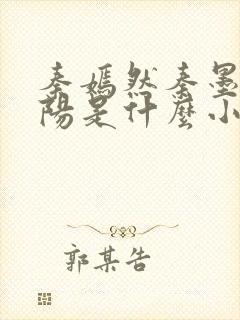 秦嫣然秦墨
陽是什麼小
郭某告